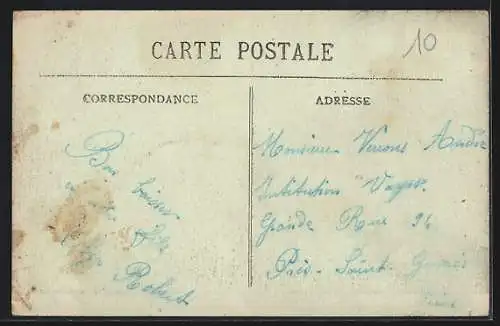 CARTE POSTALE
10
CORRESPONDANCE
Bon baiser
Robert
ADRESSE
Monsieur André
Institution
Grande Rue 24
Prés-Saint-Gervais